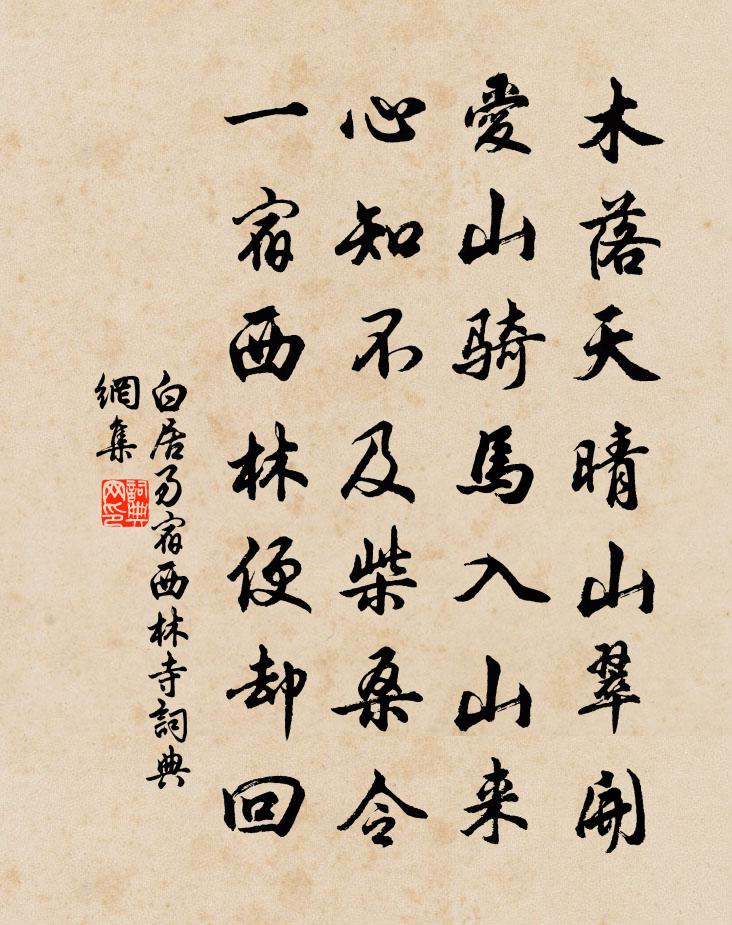 木落天晴山翠開
愛山騎馬入山来
心知不及柴桑令
一宿西林便却回
白居易宿西林寺詞典
網集
詞典
网印